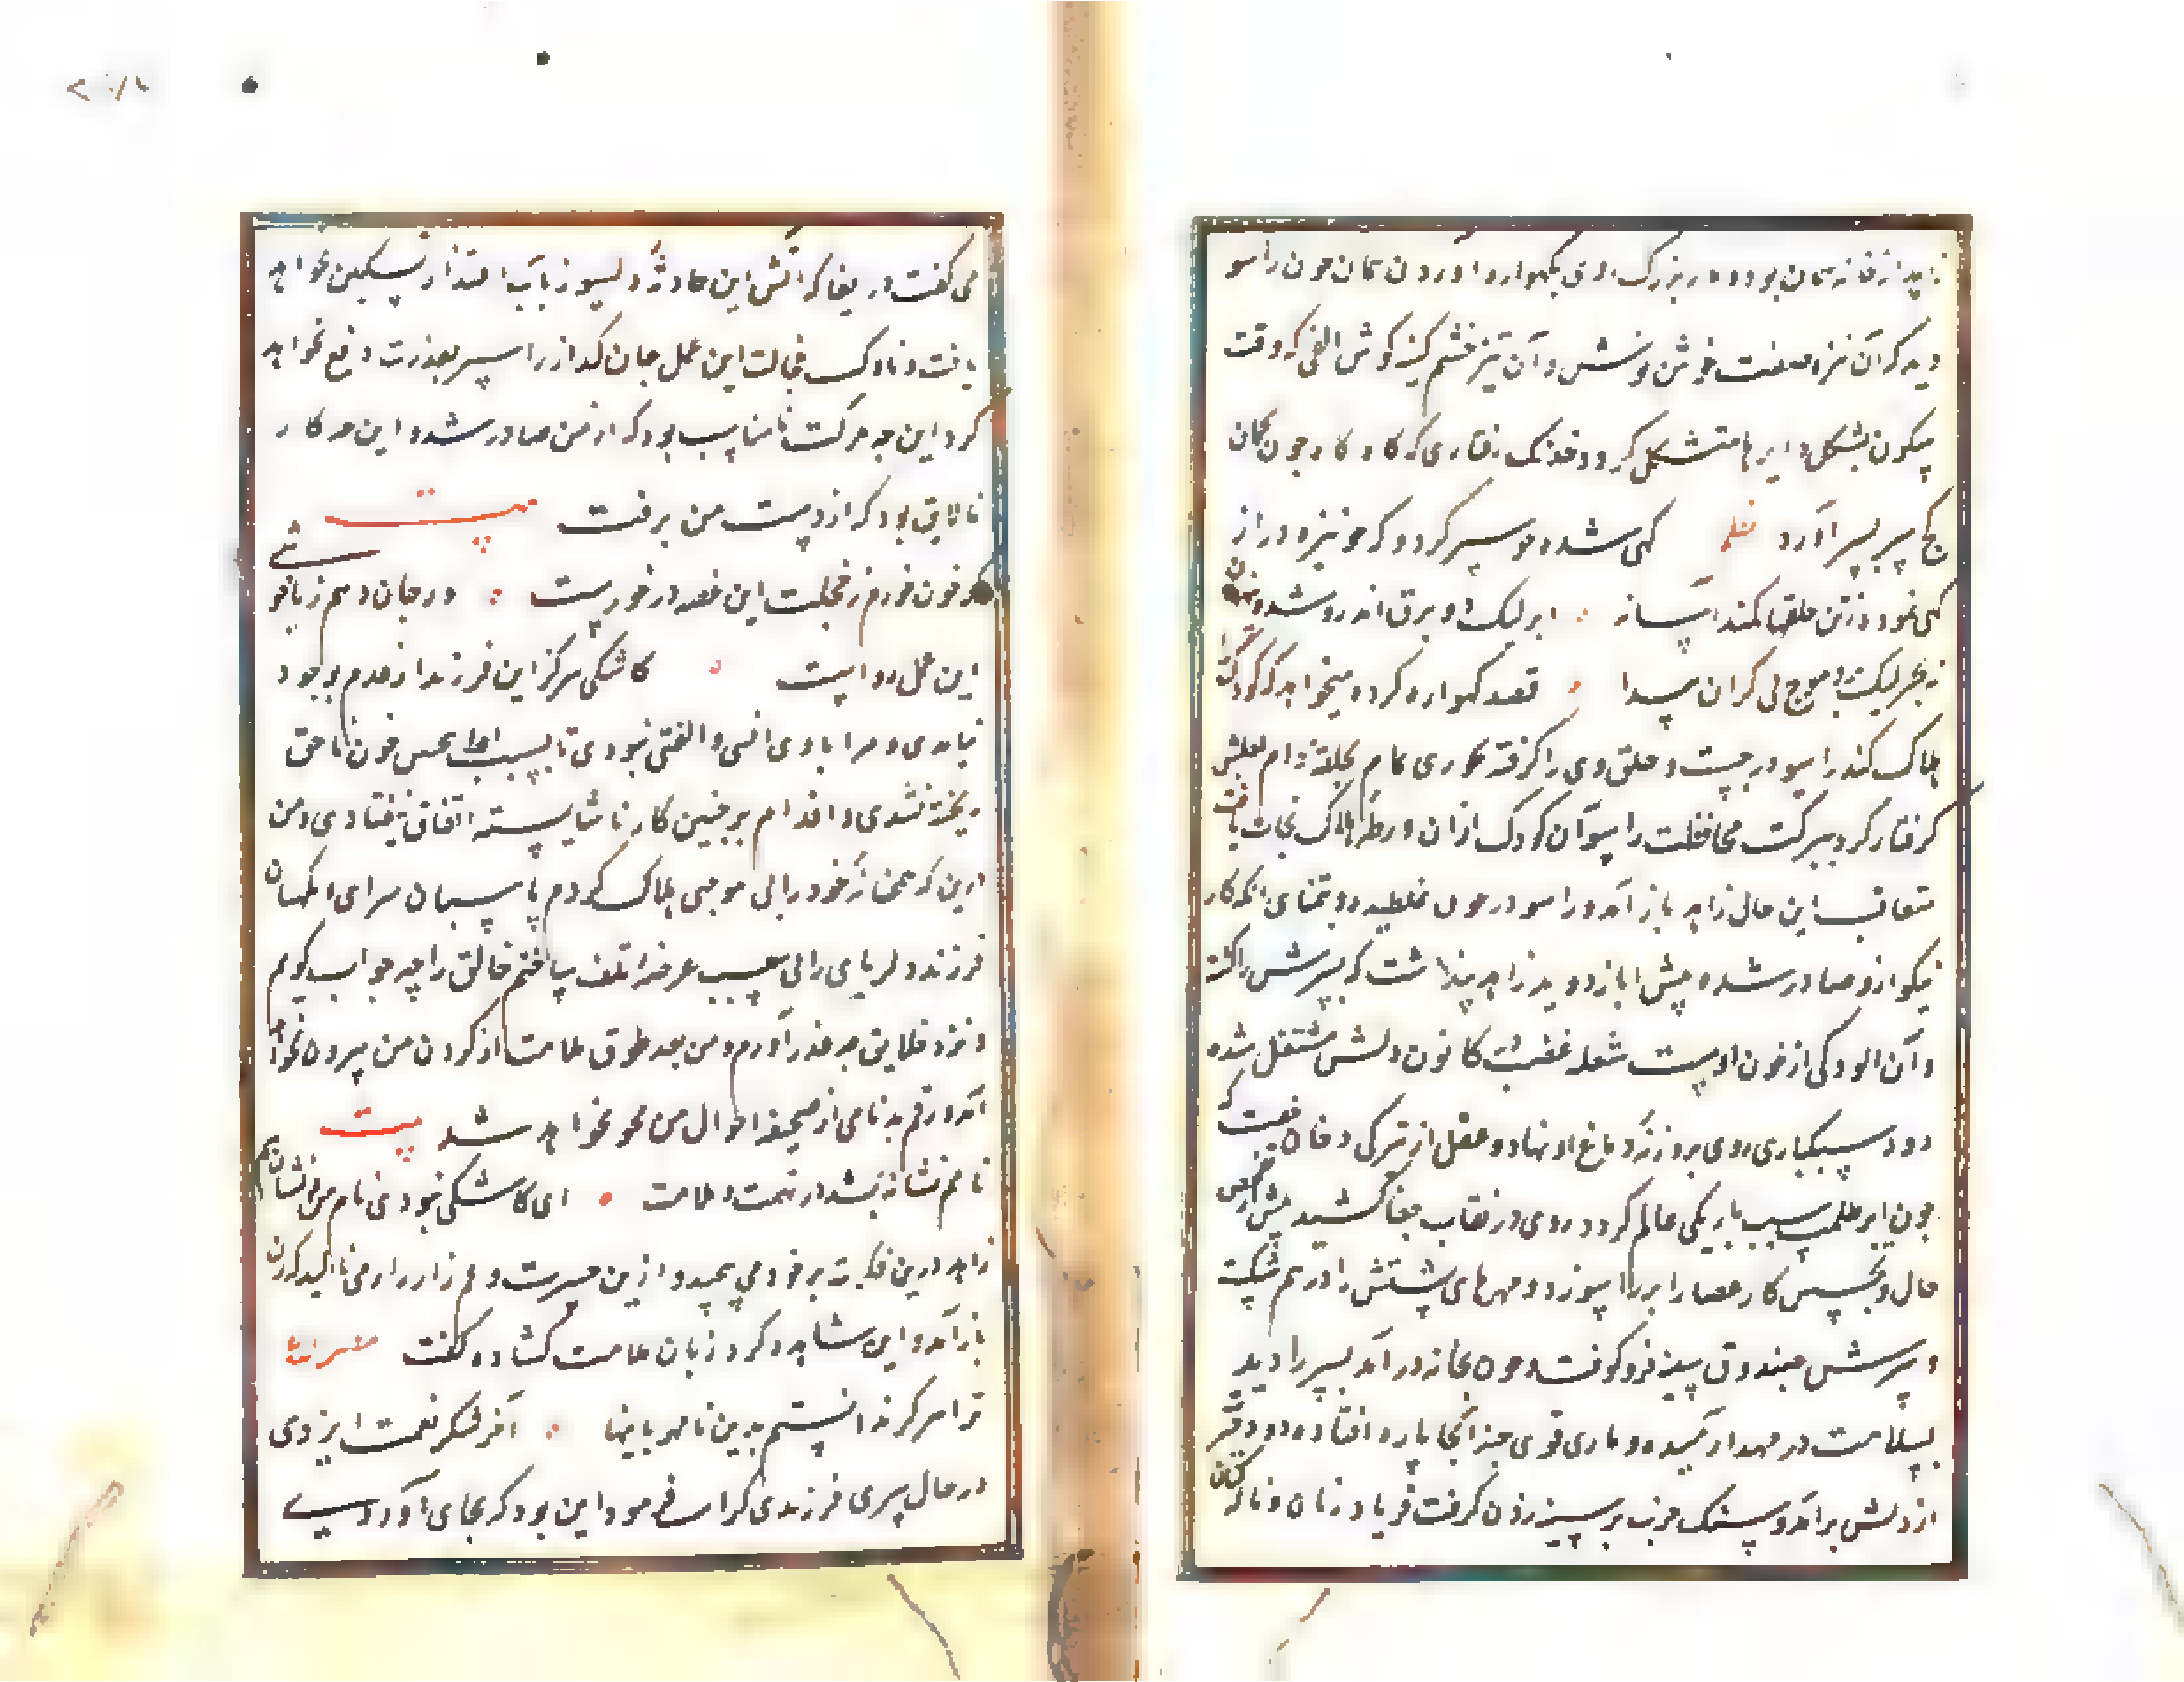 زاهد از خانه همان بود و مار بزرگ روی بگهواره آوردن همان چون راسو
دید که آن نیزه صفت خوش پوش و آن تیز خشم کینه کوش افعی که وقت
سکون بشکل دایرها متشکل گردد خدنک رفتاری که گاه گاه چون کمان
کج سر بسر آرد نظم گهی شده چو سپر گرد و گه چو نیزه دراز
گهی نموده ز تن حلقها کمند انداز ابر لیک او برق اندرو شده
نه بحر لیک بدو موج بی کران پیدا قصد گهواره کرده میخواهد که کودک را
هلاک کند راسو درجست و حلق وی را گرفته بحلقه دام بلایش
گرفتار کرد ببرکت محافظت راسو آن کودک ازان ورطه هلاک نجات یافت
متعاقب این حال زاهد باز آمد و راسو در خون غلطیده و بتمنای آنکه کار
نیکو ازو صادر شده پیش او باز دوید زاهد پنداشت که پسرش را کشت
و آن آلودگی از خون اوست شعله غضب در کانون دلش مشتعل شده
دود سبکباری روی بروزنه دماغ او نهاد و عقل از تیرگی دخان خفت که
چون ابر ظلمت سبب تاریکی عالم گردد روی در نقاب خفا کشید پیش از تحقیق
حال و تجسس کار عصا را بر راسو زد و مهرهای پشتش را درهم شکست
و سرش بصندوق سینه فرو کوفت و چون بخانه درآمد پسر را دید
بسلامت در مهد آرمیده و ماری قوی جثه آنجا پاره پاره افتاده دود حیرت
از دلش برآمد و سنک حزن بر سینه زدن گرفت فریاد زنان و ناله کنان
می گفت دریغا که آتش این حادثه دلسوز بآب اعتذار تسکین نخواهد
یافت و ناوک خجالت این عمل جان گداز را سپر معذرت دفع نخواهد
کرد این چه حرکت نامناسب بود که از من صادر شد و این چه کار
نالایق بود که از دست من برفت بیت
گر خون خورم ز خجلت این غصه در خورست ور جان دهم ز
این عمل رواست کاشکی هرگز این فرزند از عدم بوجود
نیامدی و مرا با وی انسی و الفتی نبودی تا بسبب او این خون ناحق
ریخته نشدی و اقدام بر چنین کار ناشایسته اتفاق نیفتادی و من
ازین که همخانه خود را بی موجبی هلاک کردم و پاسبان سرای و نگهبان
فرزند دلربای را بی سبب عرضه تلف ساختم خالق را چه جواب گویم
و نزد خلایق چه عذر آورم و من بعد طوق ملامت از گردن من بیرون نخواهد
آمد و رقم بدنامی از صحیفه احوال من محو نخواهد شد بیت
نامم نشانه شد از تهمت و ملامت ای کاشکی نبودی نام من و نشان هم
زاهد درین فکرت بر خود می پیچید و ازین حسرت و غم زار زار می نالید که زن
باز آمد و این مشاهده کرد زبان ملامت گشاد و گفت
ترا هرگز ندانستم بدین نامهربانیها آخر شکر نعمت ایزدی
در حال پیری فرزندی کرامت فرمود این بود که بجای آوردی